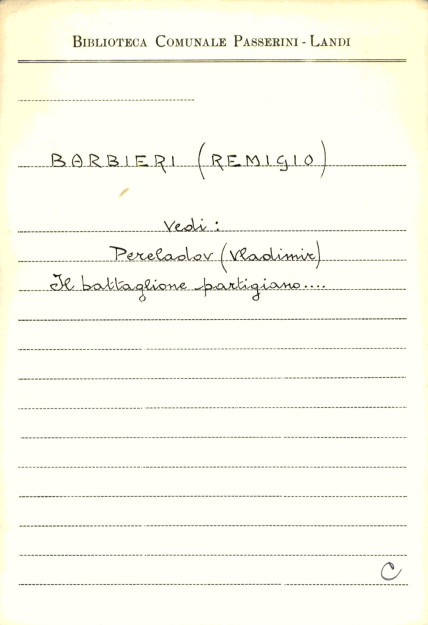 BIBLIOTECA COMUNALE PASSERINI - LANDI
BARBIERI (REMIGIO)
Vedi :
Pereladov (Vladimir)
Il battaglione partigiano....
C